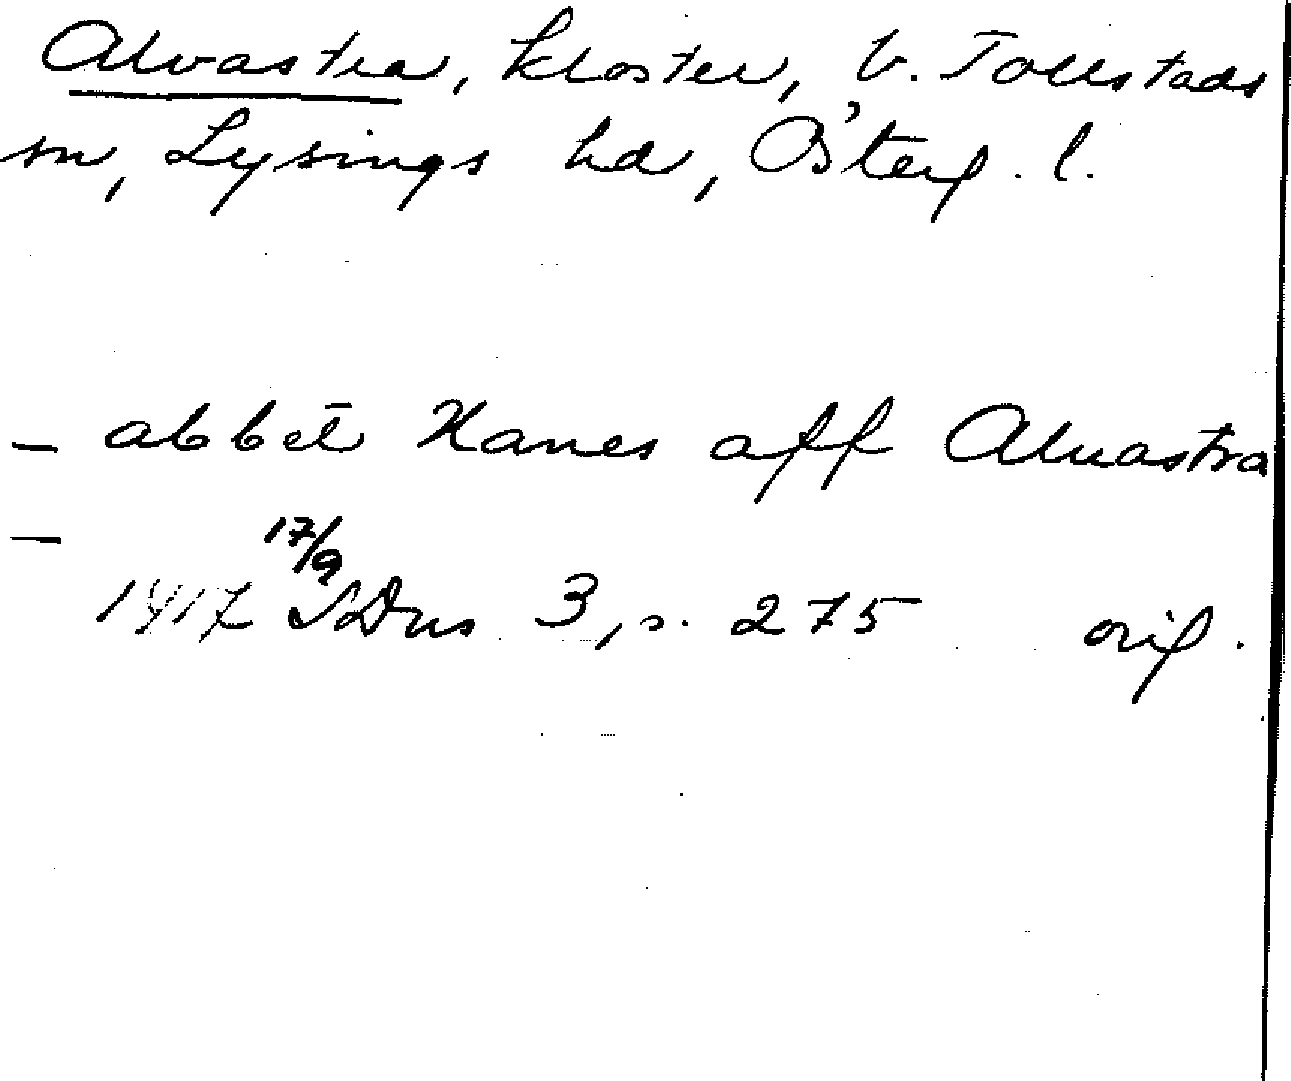 Alvastra, kloster, V. Tollstads
sn, Lysings hd, Österg. l.
– abbēt Hanes aff Aluastra
–
1417 17/9 SDns 3, s. 275 orig.